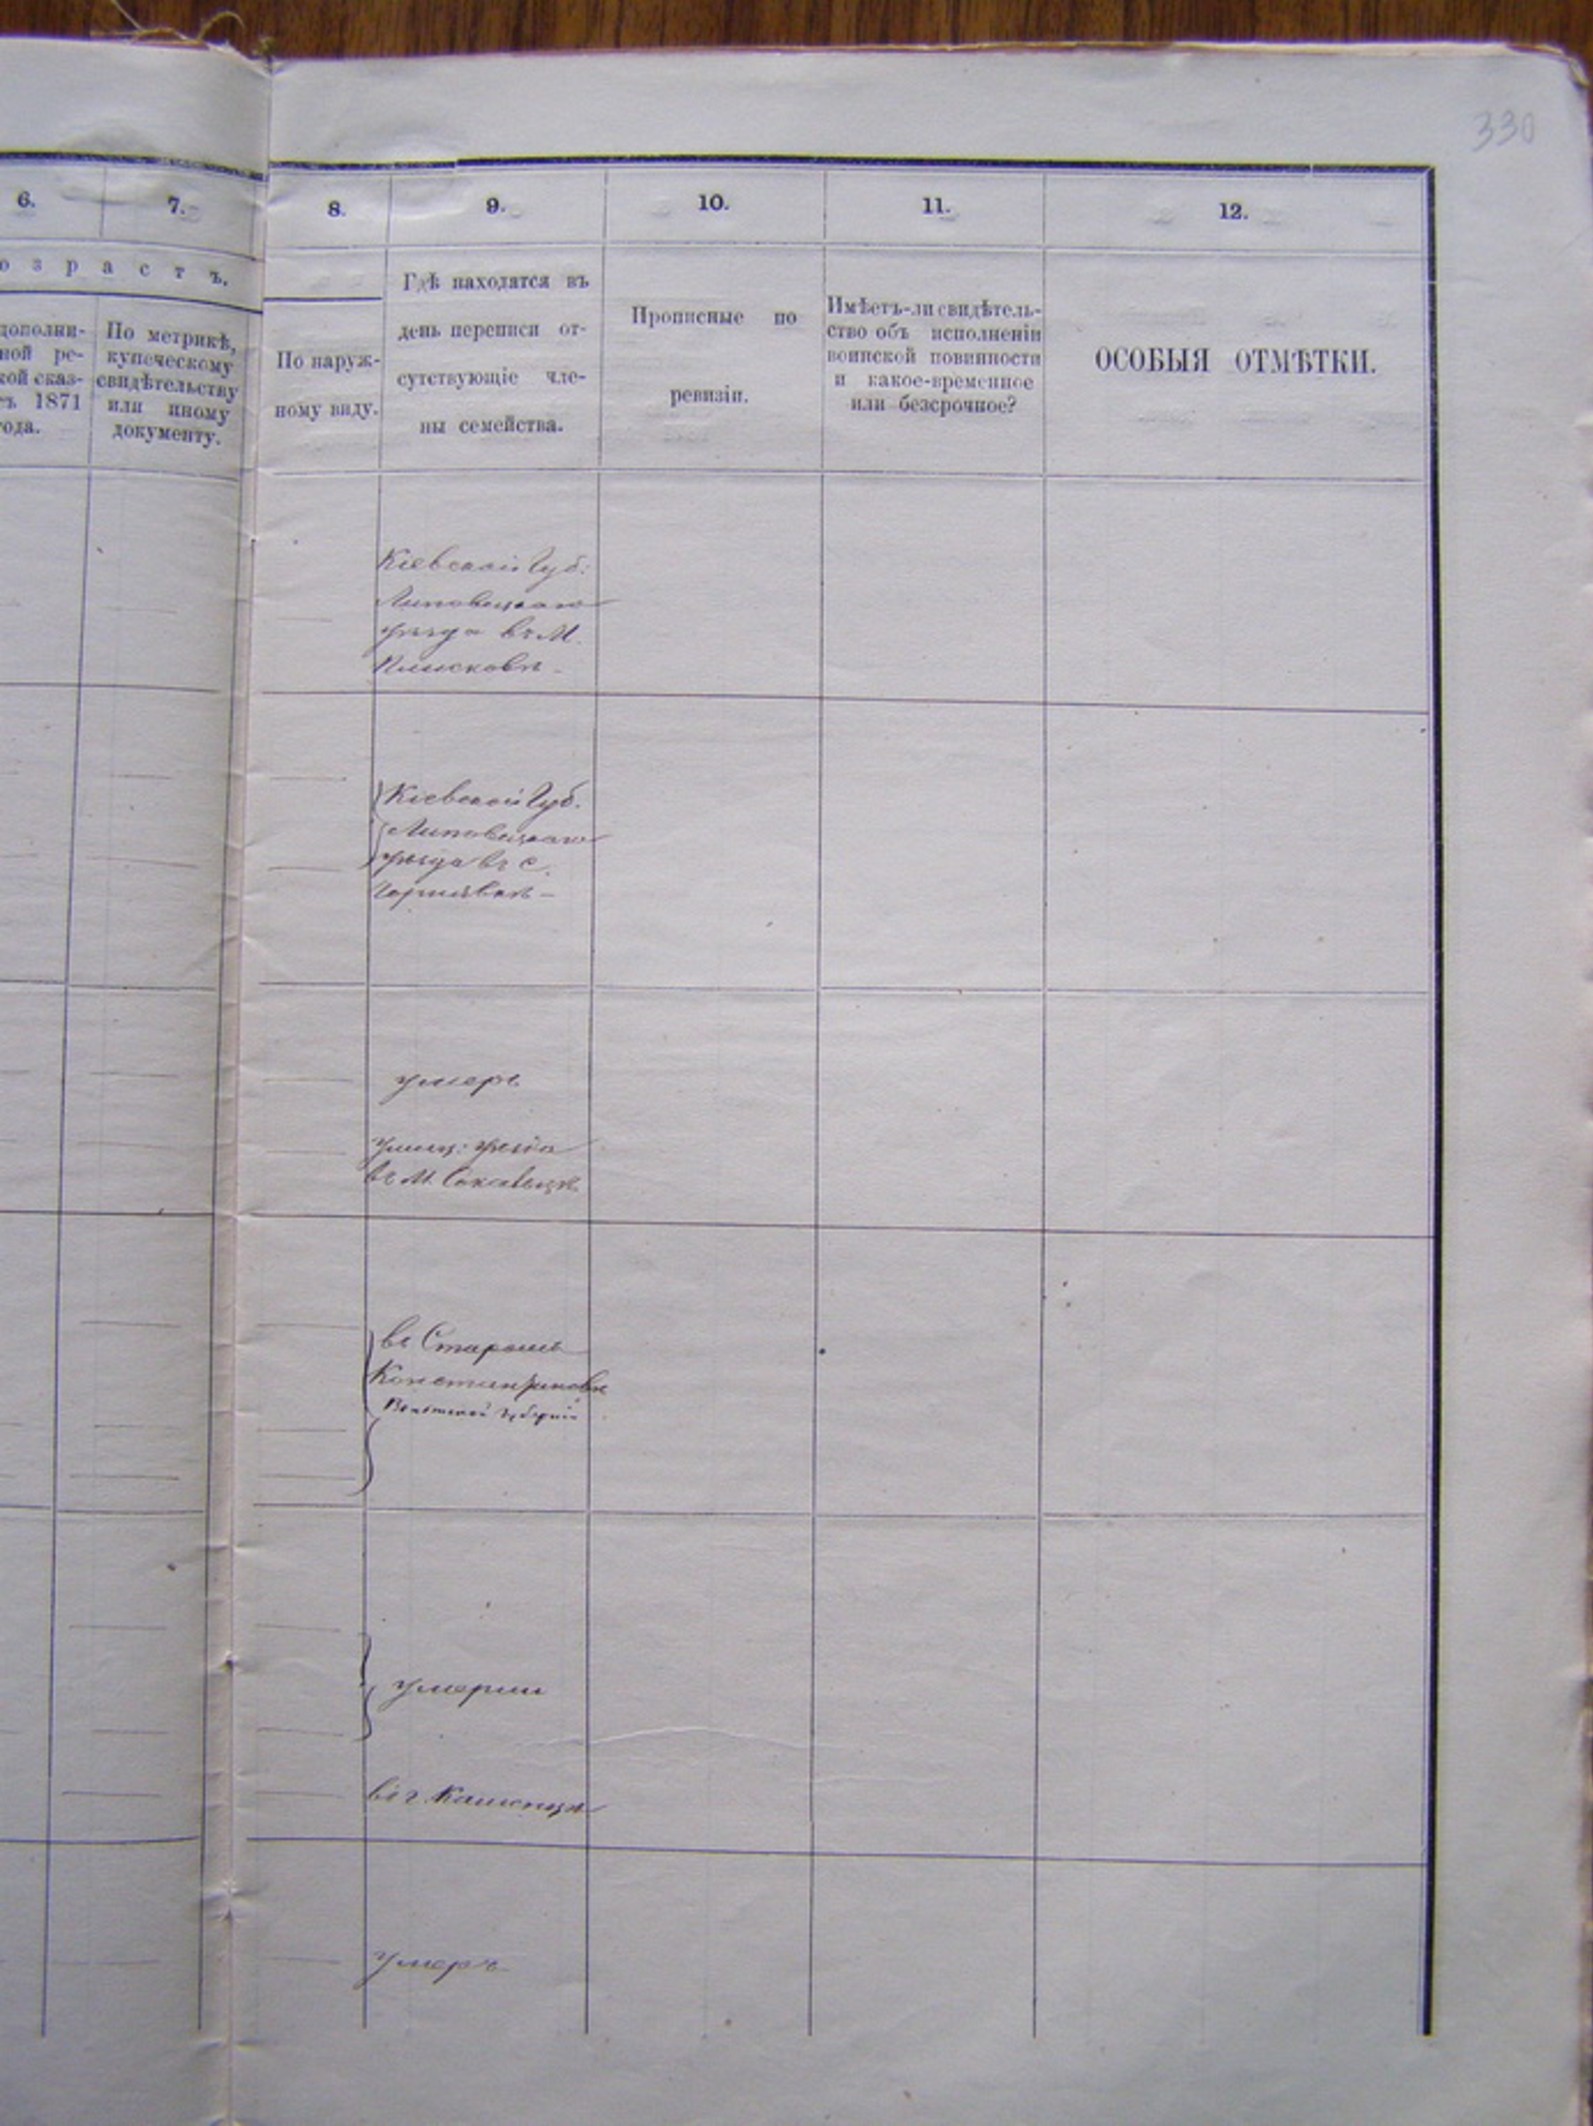 330
6.
7.
8.
9.
10.
11.
12.
озрастъ.
дополни-
ной ре-
кой сказ-
съ 1871
года.
По метрикѣ,
купеческому
свидѣтельству
или иному
документу.
По наруж-
ному виду.
Гдѣ находятся въ
день переписи от-
сутствующіе чле-
ны семейства.
Прописные по
ревизіи.
Имѣетъ-ли свидѣтель-
ство объ исполненіи
воинской повинности
и какое-временное
или безсрочное?
ОСОБЫЯ ОТМѢТКИ.
Кіевской Губ:
Липовецкаго
уѣзда въ М.
Плисковѣ
Кіевской Губ.
Липовецкаго
уѣзда въ с.
умеръ
уѣзда
въ М.
въ Старомъ
Константиновѣ
Волынской губерніи
умерли
въ г. Каменцѣ
умеръ